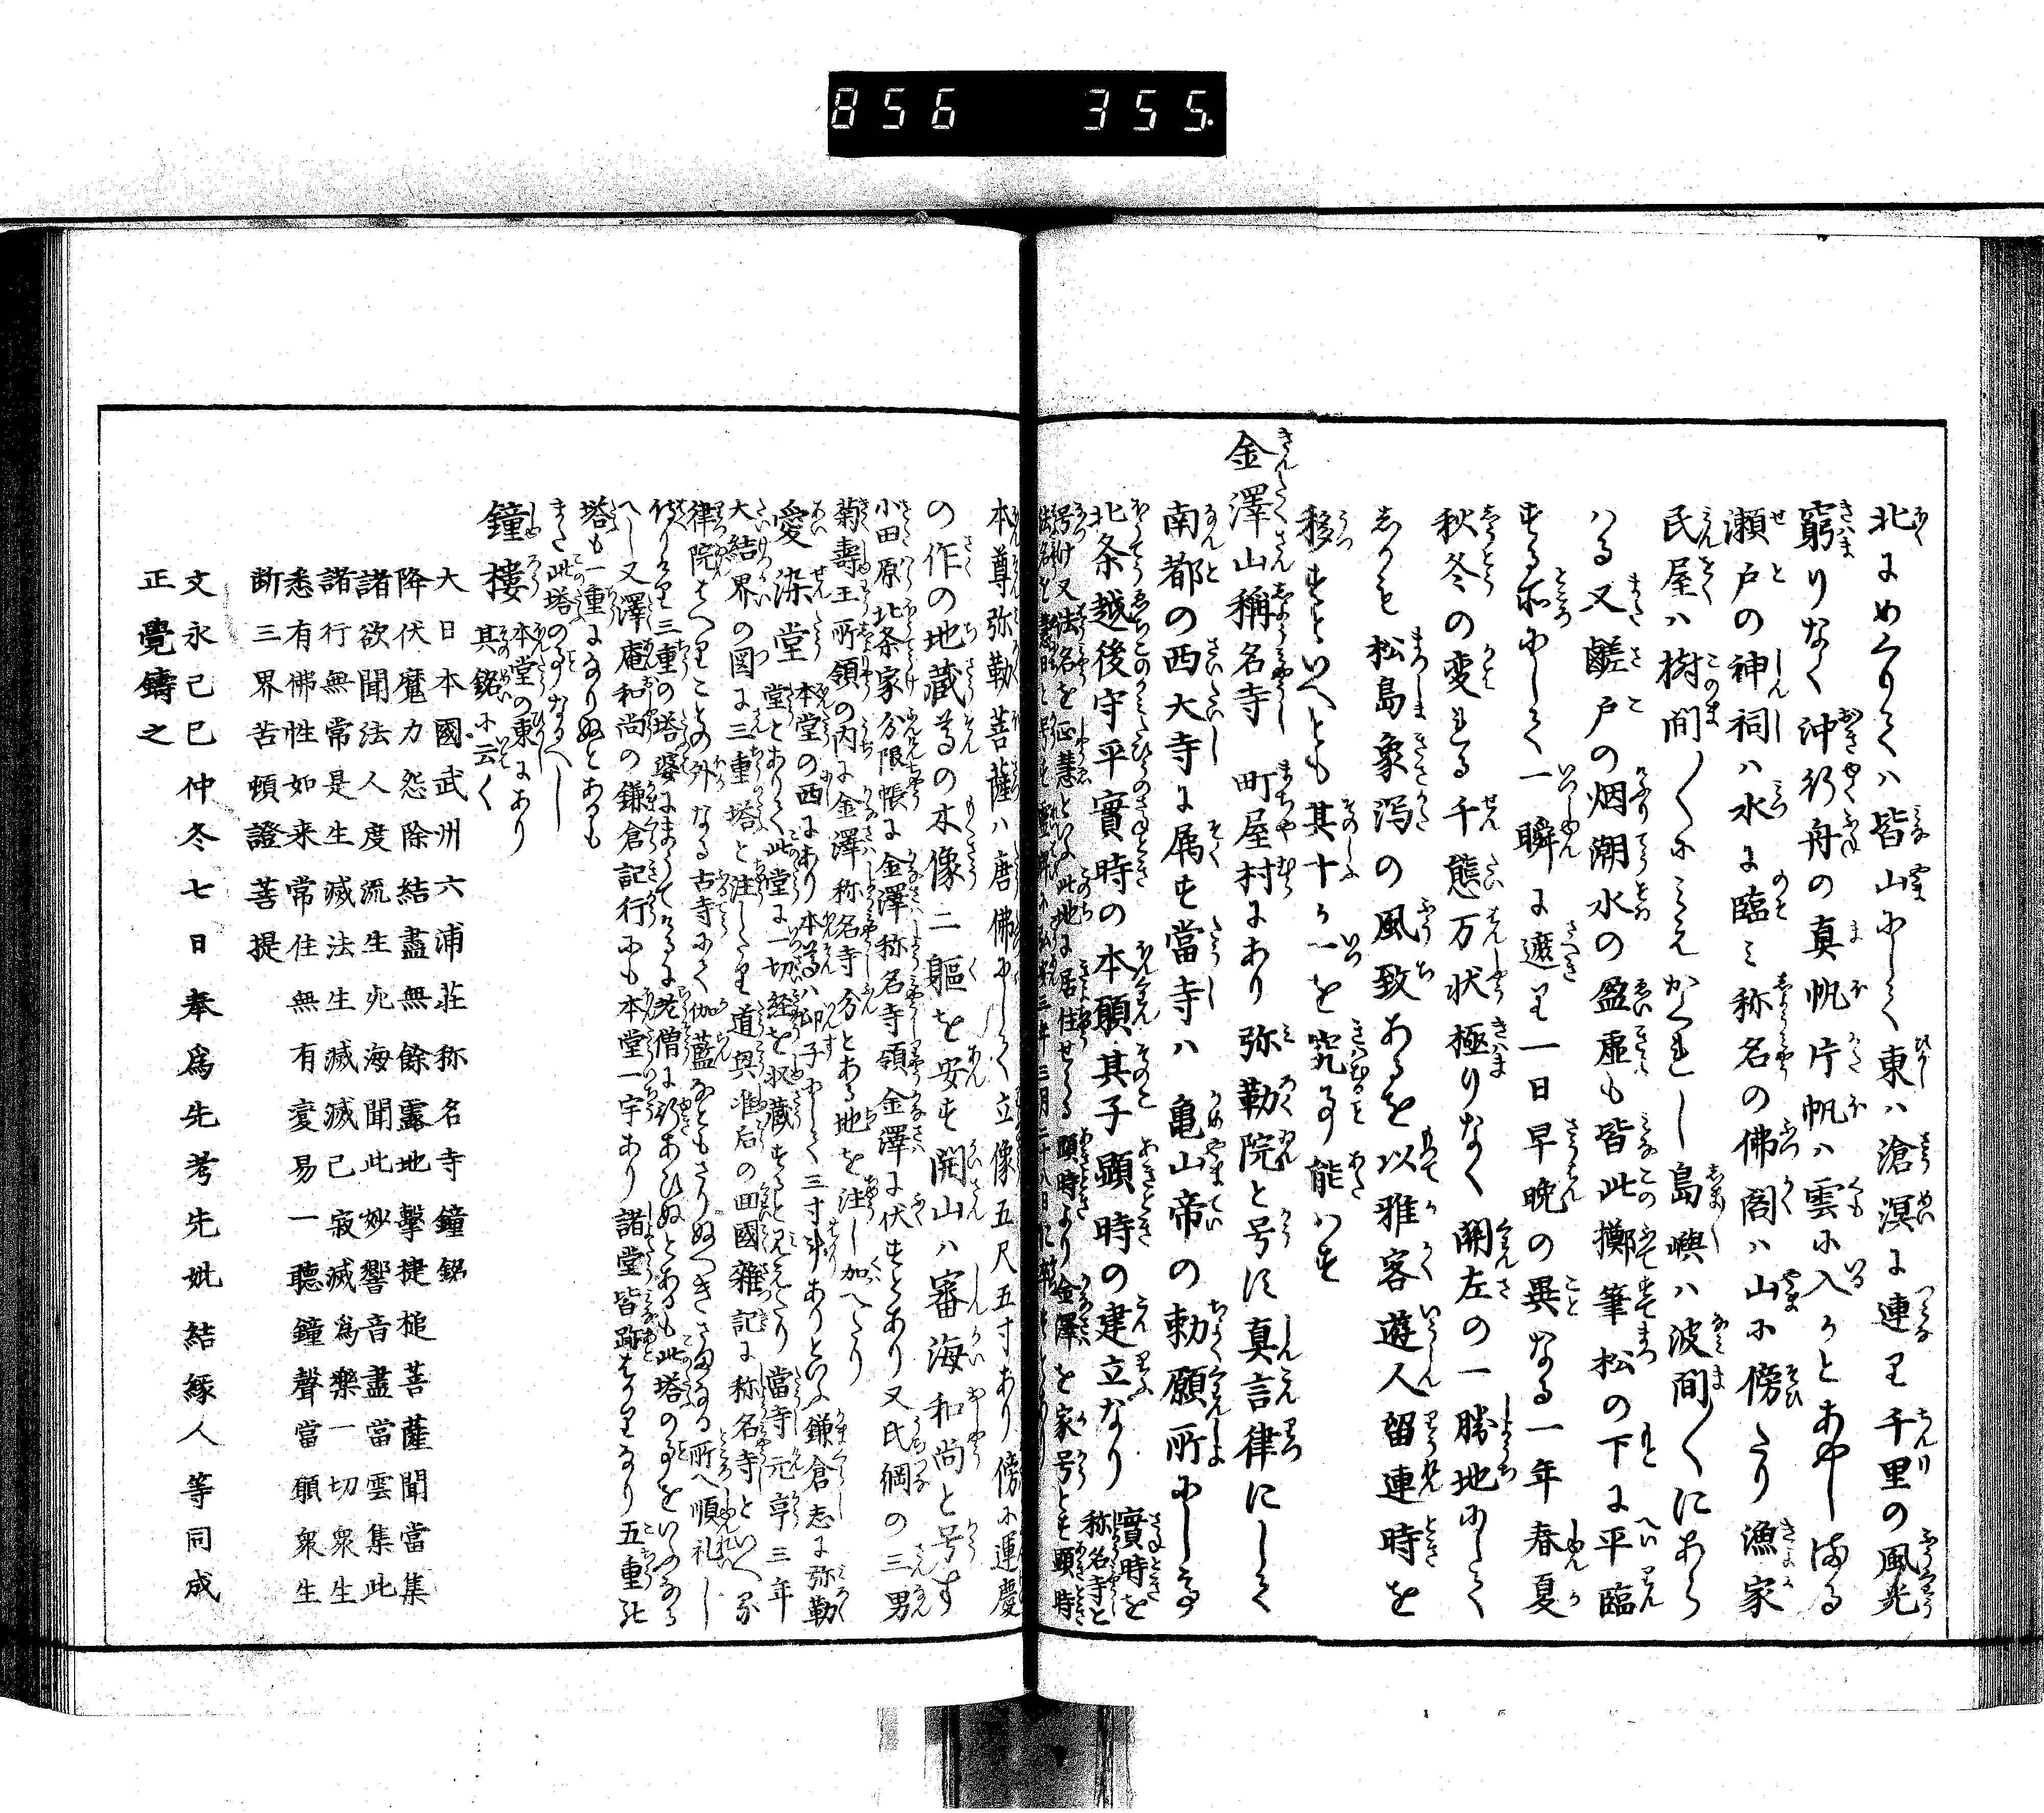 856 355.
北にめくりてハ皆山にして東ハ滄溟に連り千里の風光
窮りなく沖行舟の真帆片帆ハ雲に入かとあやしまる
瀬戸の神祠ハ水に臨ミ称名の佛閣ハ山に傍たり漁家
民屋ハ樹間〳〵にみえかくれし島嶼ハ波間〳〵にあら
ハる又鹾戸の烟潮水の盈虚も皆此擲筆松の下に平臨
する所にして一瞬に遮り一日早晩の異なる一年春夏
秋冬の変れる千態万状極りなく関左の一勝地にして
しかも松島象泻の風致あるを以雅客遊人留連時を
移すといへとも其十か一を究る事能ハす
金澤山稱名寺 町屋村にあり弥勒院と号に真言律にして
南都の西大寺に属す當寺ハ亀山帝の勅願所にして
北条越後守平實時の本願其子顕時の建立なり 實時を称名寺と
号け又法名を正慧といふ此地に居住せる 顕時より金澤を家号とす顕時
本尊弥勒菩薩ハ唐佛にして立像五尺五寸あり傍に運慶
の作の地蔵尊の木像二軀を安す開山ハ審海和尚と号す
小田原北条家分限帳に金澤称名寺領金澤に伏すとあり又氏綱の三男
菊壽王所領の内に金澤称名寺分とある地を注し加へたり
愛染堂 本堂の西にあり本尊ハ印子にして三寸斗ありといふ鎌倉志に弥勒
堂とありて此堂に一切経を収蔵すると見えたり當寺元享三年
大結界の図に三重塔と注したり道興准后の回國雑記に称名寺といへる
律院はへりことの外なる古寺にて伽藍なともさりぬへきさまなる所へ順礼し
侍りけり三重の塔婆にまうてけるに老僧に行あひぬとあるも此塔の事をいふなら
へし又澤庵和尚の鎌倉記行にも本堂一宇あり諸堂皆跡はかりなり五重の
塔も一重になりぬとあるも
また此塔の事なるへし
鐘樓 本堂の東にあり
其銘に云く
大日本國武州六浦荘称名寺鐘銘
降伏魔力怨除結盡無餘露地擊揵槌菩薩聞當集
諸欲聞法人度流生死海聞此妙響音盡當雲集此
諸行無常是生滅法生滅滅己寂滅為樂一切衆生
悉有佛性如来常住無有変易一聴鐘聲當願衆生
断三界苦頓證菩提
文永己巳仲冬七日奉為先考先妣結縁人等同成
正覺鑄之